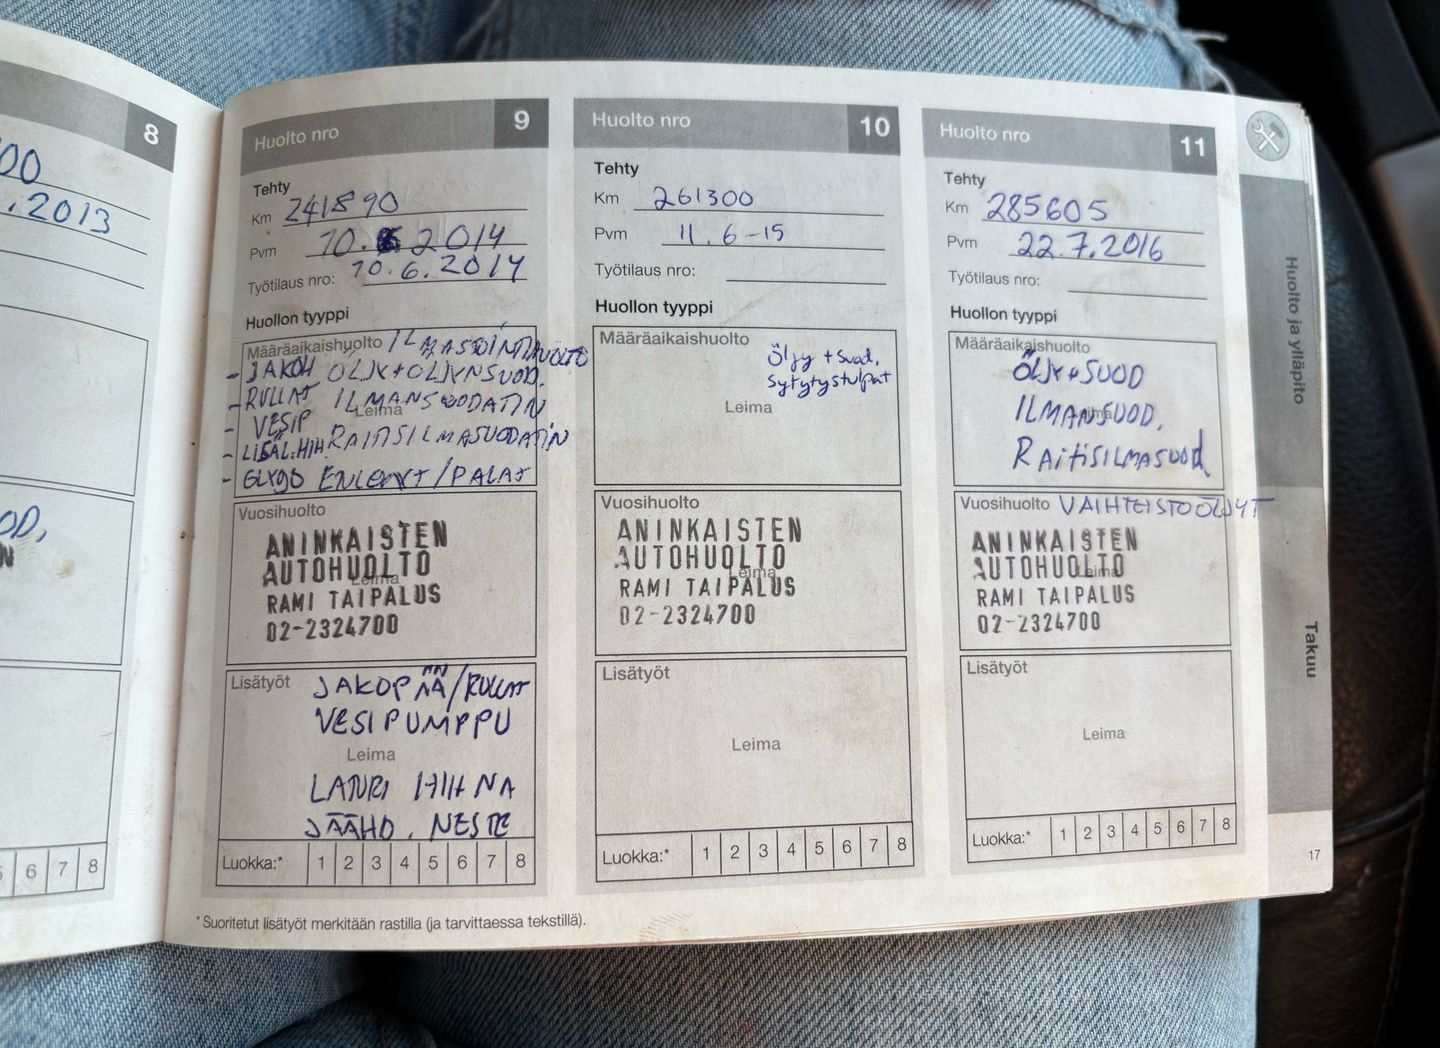 8
00
.2013
OD,
N
6 7 8
Huolto nro 9
Tehty
Km 241890
Pvm 10. 2014
Työtilaus nro: 10.6.2014
Huollon tyyppi
Määräaikaishuolto ILMASTOINTIHUOLTO
- JAKOH ÖLJY+ÖLJYNSUOD.
- RULLAT ILMANSUODATIN
Leima
- VESIP
- LISÄL.HIH. RAITISILMASUODATIN
- GLYGO /PALAT
Vuosihuolto
ANINKAISTEN
AUTOHUOLTO
Leima
RAMI TAIPALUS
02-2324700
Lisätyöt JAKOPÄÄ/RULLAT
VESIPUMPPU
Leima
LATURI HIHNA
JÄÄHD. NESTE
Luokka:* 1 2 3 4 5 6 7 8
* Suoritetut lisätyöt merkitään rastilla (ja tarvittaessa tekstillä).
Huolto nro 10
Tehty
Km 261300
Pvm 11.6-15
Työtilaus nro:
Huollon tyyppi
Määräaikaishuolto
Öljy+suod.
sytytystulpat
Leima
Vuosihuolto
ANINKAISTEN
AUTOHUOLTO
Leima
RAMI TAIPALUS
02-2324700
Lisätyöt
Leima
Luokka:* 1 2 3 4 5 6 7 8
Huolto nro 11
Tehty
Km 285605
Pvm 22.7.2016
Työtilaus nro:
Huollon tyyppi
Määräaikaishuolto
ÖLJY+SUOD
ILMANSUOD.
Leima
RAITISILMASUOD.
Vuosihuolto VAIHTEISTOÖLJYT
ANINKAISTEN
AUTOHUOLTO
Leima
RAMI TAIPALUS
02-2324700
Lisätyöt
Leima
Luokka:* 1 2 3 4 5 6 7 8
Huolto ja ylläpito
Takuu
17